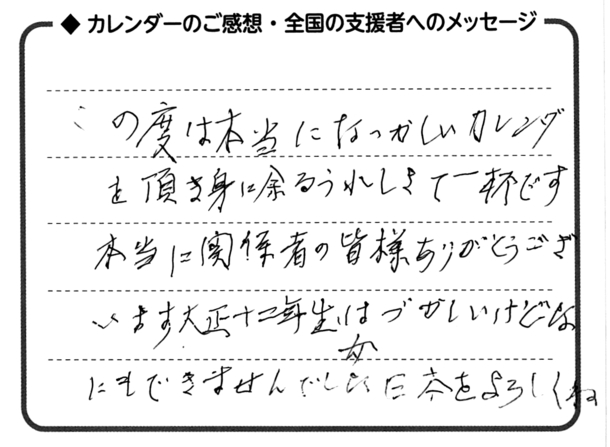 ◆ カレンダーのご感想・全国の支援者へのメッセージ
この度は本当になつかしいカレンダ
を頂き身に余るうれしさで一杯です
本当に関係者の皆様ありがとうござ
います大正十二年生はづかしいけどな
にもできませんでした 日本をよろしくね